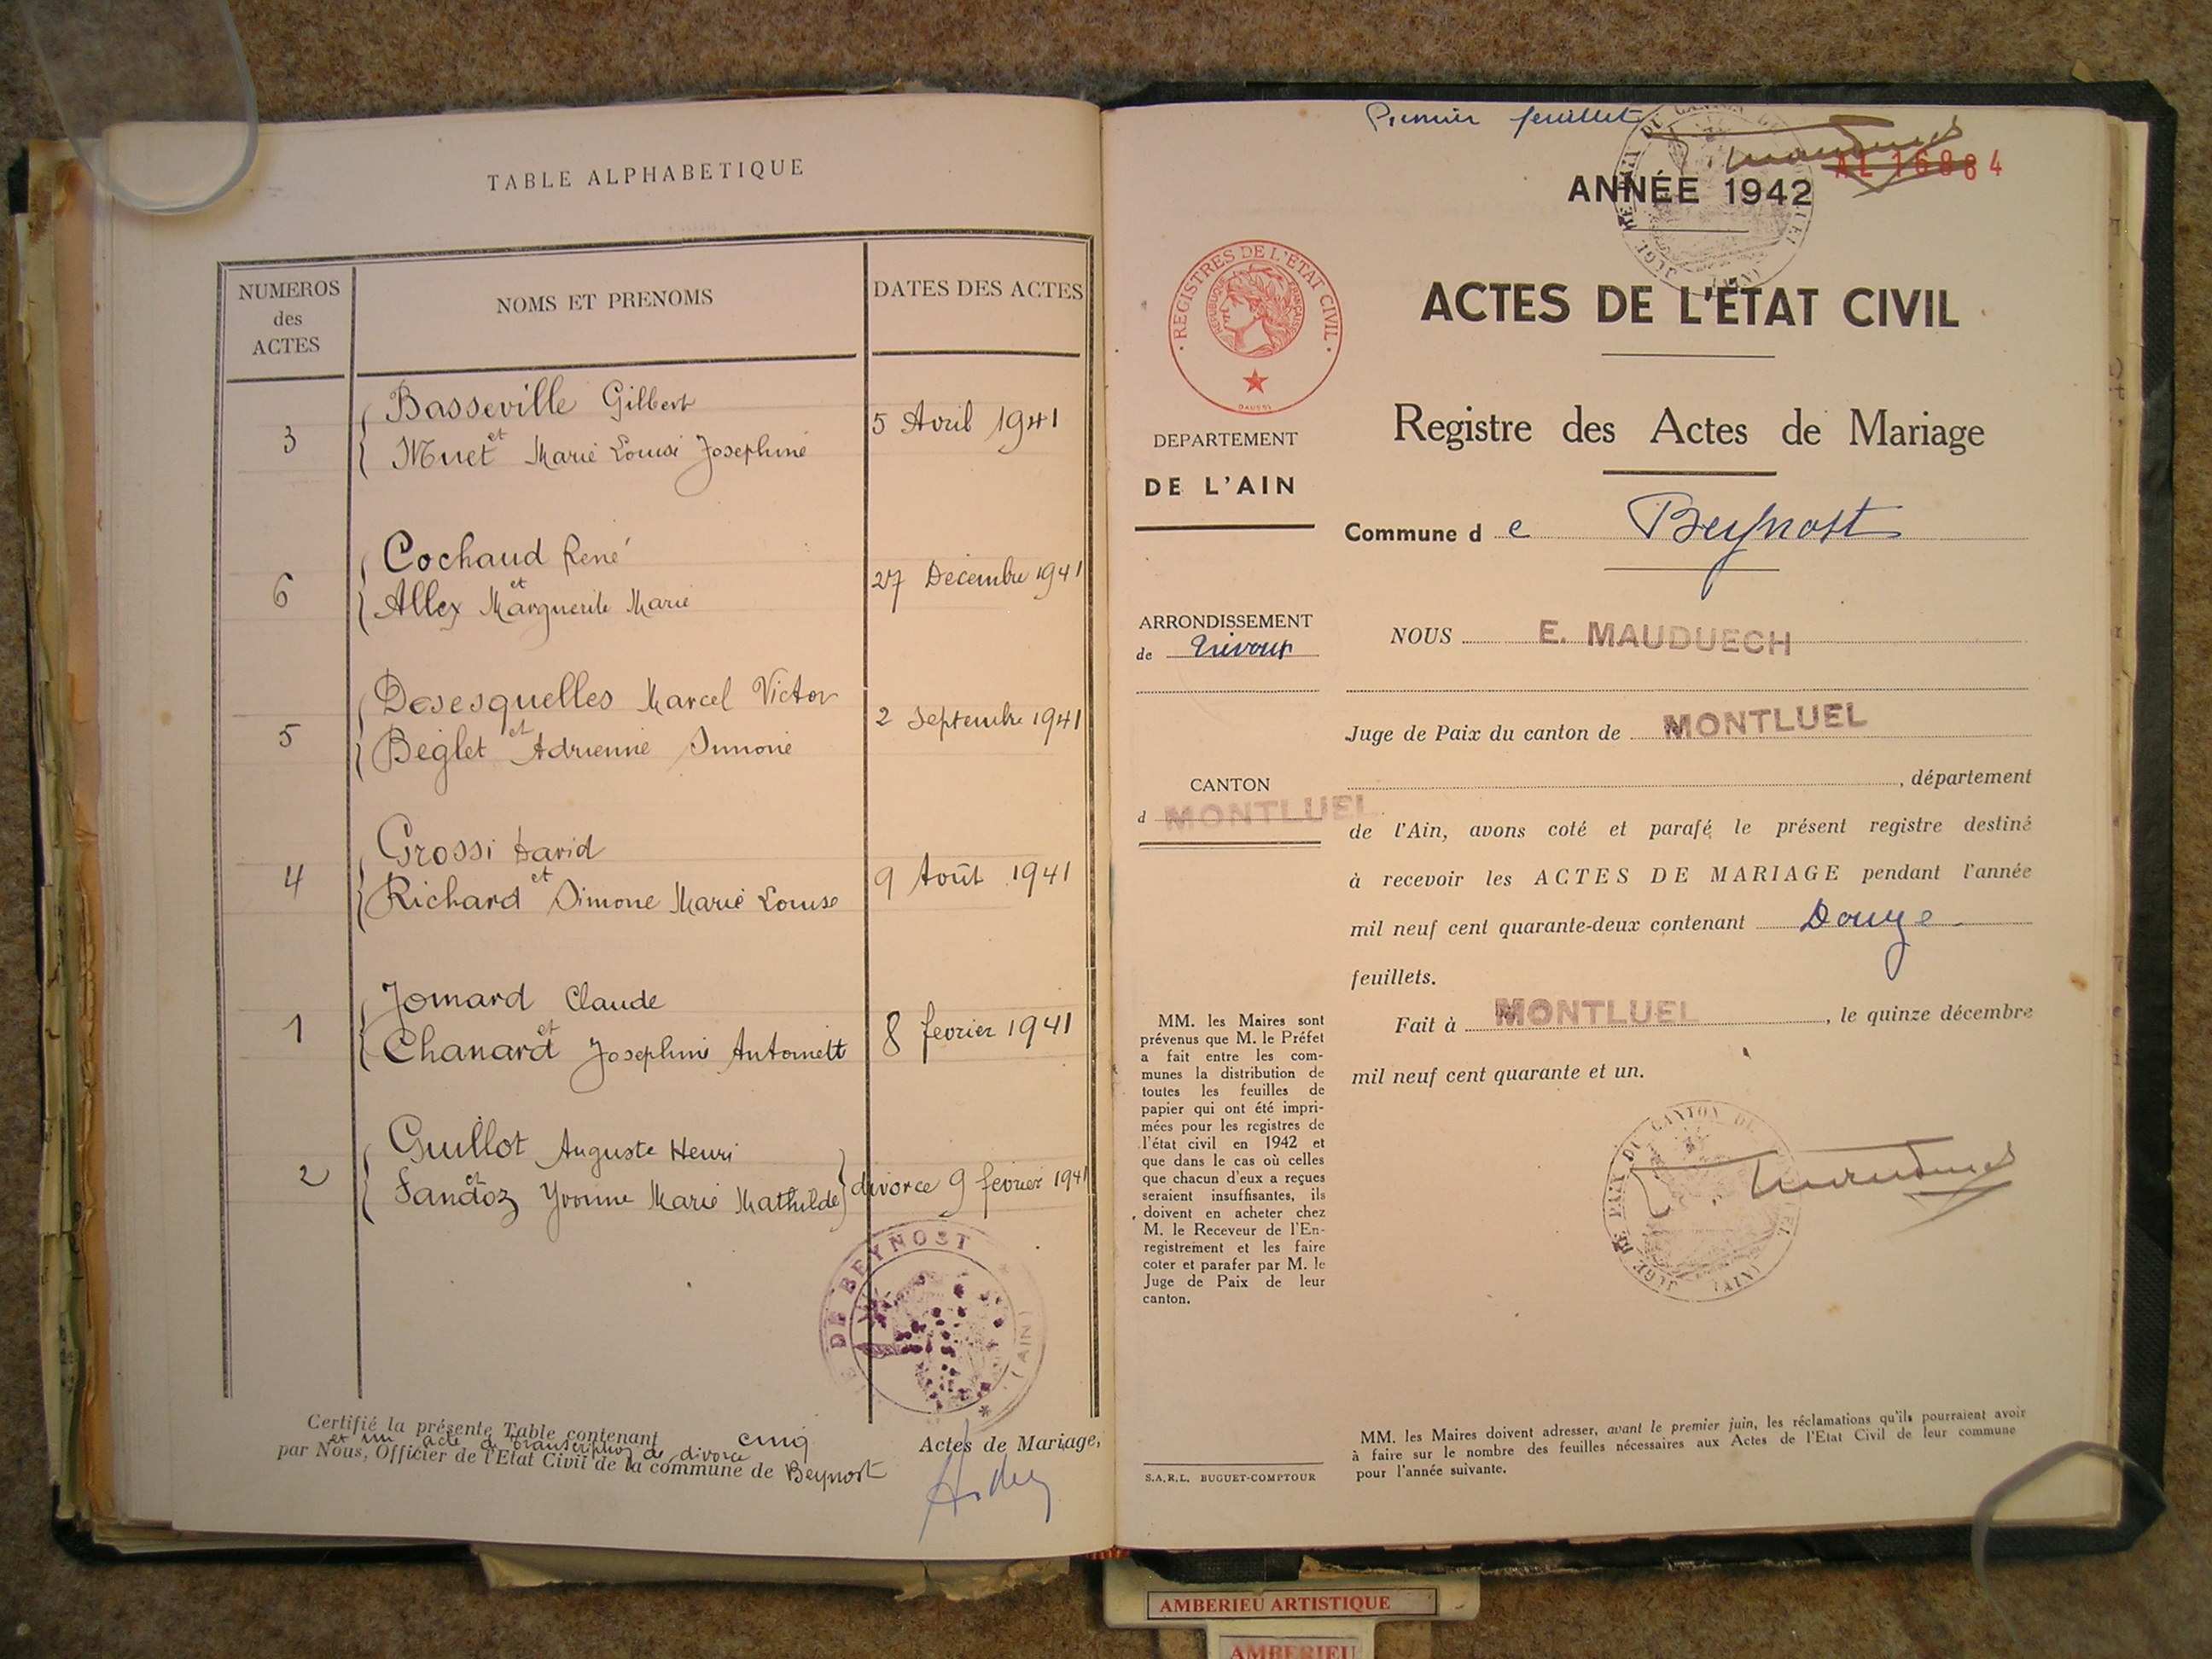 TABLE ALPHABETIQUE
NUMEROS
des
ACTES
NOMS ET PRENOMS
DATES DES ACTES
3
Basseville Gilbert
et
Muet Marie Louise Josephine
5 Avril 1941
6
Cochaud René
et
Allex Marguerite Marie
27 Decembre 1941
5
Desesquelles Marcel Victor
et
Beglet Adrienne Simone
2 Septembre 1941
4
Grossi David
et
Richard Simone Marie Louise
9 Août 1941
1
Jomard Claude
et
Chanard Josephine Antoinett
8 fevrier 1941
2
Guillot Auguste Henri
et
Sandoz Yvonne Marie Mathilde
divorce 9 fevrier 1941
DE BEYNOST
(AIN)
Certifié la présente Table contenant cinq Actes de Mariage,
et un acte de transcription de divorce
par Nous, Officier de l'Etat Civil de la commune de Beynost
Premier feuillet
JUGE DE PAIX DU CANTON DE
(AIN)
AL 16884
ANNÉE 1942
REGISTRES DE L'ÉTAT CIVIL
RÉPUBLIQUE FRANÇAISE
ACTES DE L'ÉTAT CIVIL
Registre des Actes de Mariage
DEPARTEMENT
DE L'AIN
Commune de Beynost
ARRONDISSEMENT
de Trévoux
NOUS E. MAUDUECH
Juge de Paix du canton de MONTLUEL
, département
CANTON
d MONTLUEL
de l'Ain, avons coté et parafé le présent registre destiné
à recevoir les ACTES DE MARIAGE pendant l'année
mil neuf cent quarante-deux contenant Douze
feuillets.
Fait à MONTLUEL, le quinze décembre
mil neuf cent quarante et un.
JUGE DE PAIX DU CANTON DE
(AIN)
MM. les Maires sont
prévenus que M. le Préfet
a fait entre les com-
munes la distribution de
toutes les feuilles de
papier qui ont été impri-
mées pour les registres de
l'état civil en 1942 et
que dans le cas où celles
que chacun d'eux a reçues
seraient insuffisantes, ils
doivent en acheter chez
M. le Receveur de l'En-
registrement et les faire
coter et parafer par M. le
Juge de Paix de leur
canton.
S.A.R.L. BUGUET-COMPTOUR
MM. les Maires doivent adresser, avant le premier juin, les réclamations qu'ils pourraient avoir
à faire sur le nombre des feuilles nécessaires aux Actes de l'Etat Civil de leur commune
pour l'année suivante.
AMBERIEU ARTISTIQUE
AMBERIEU